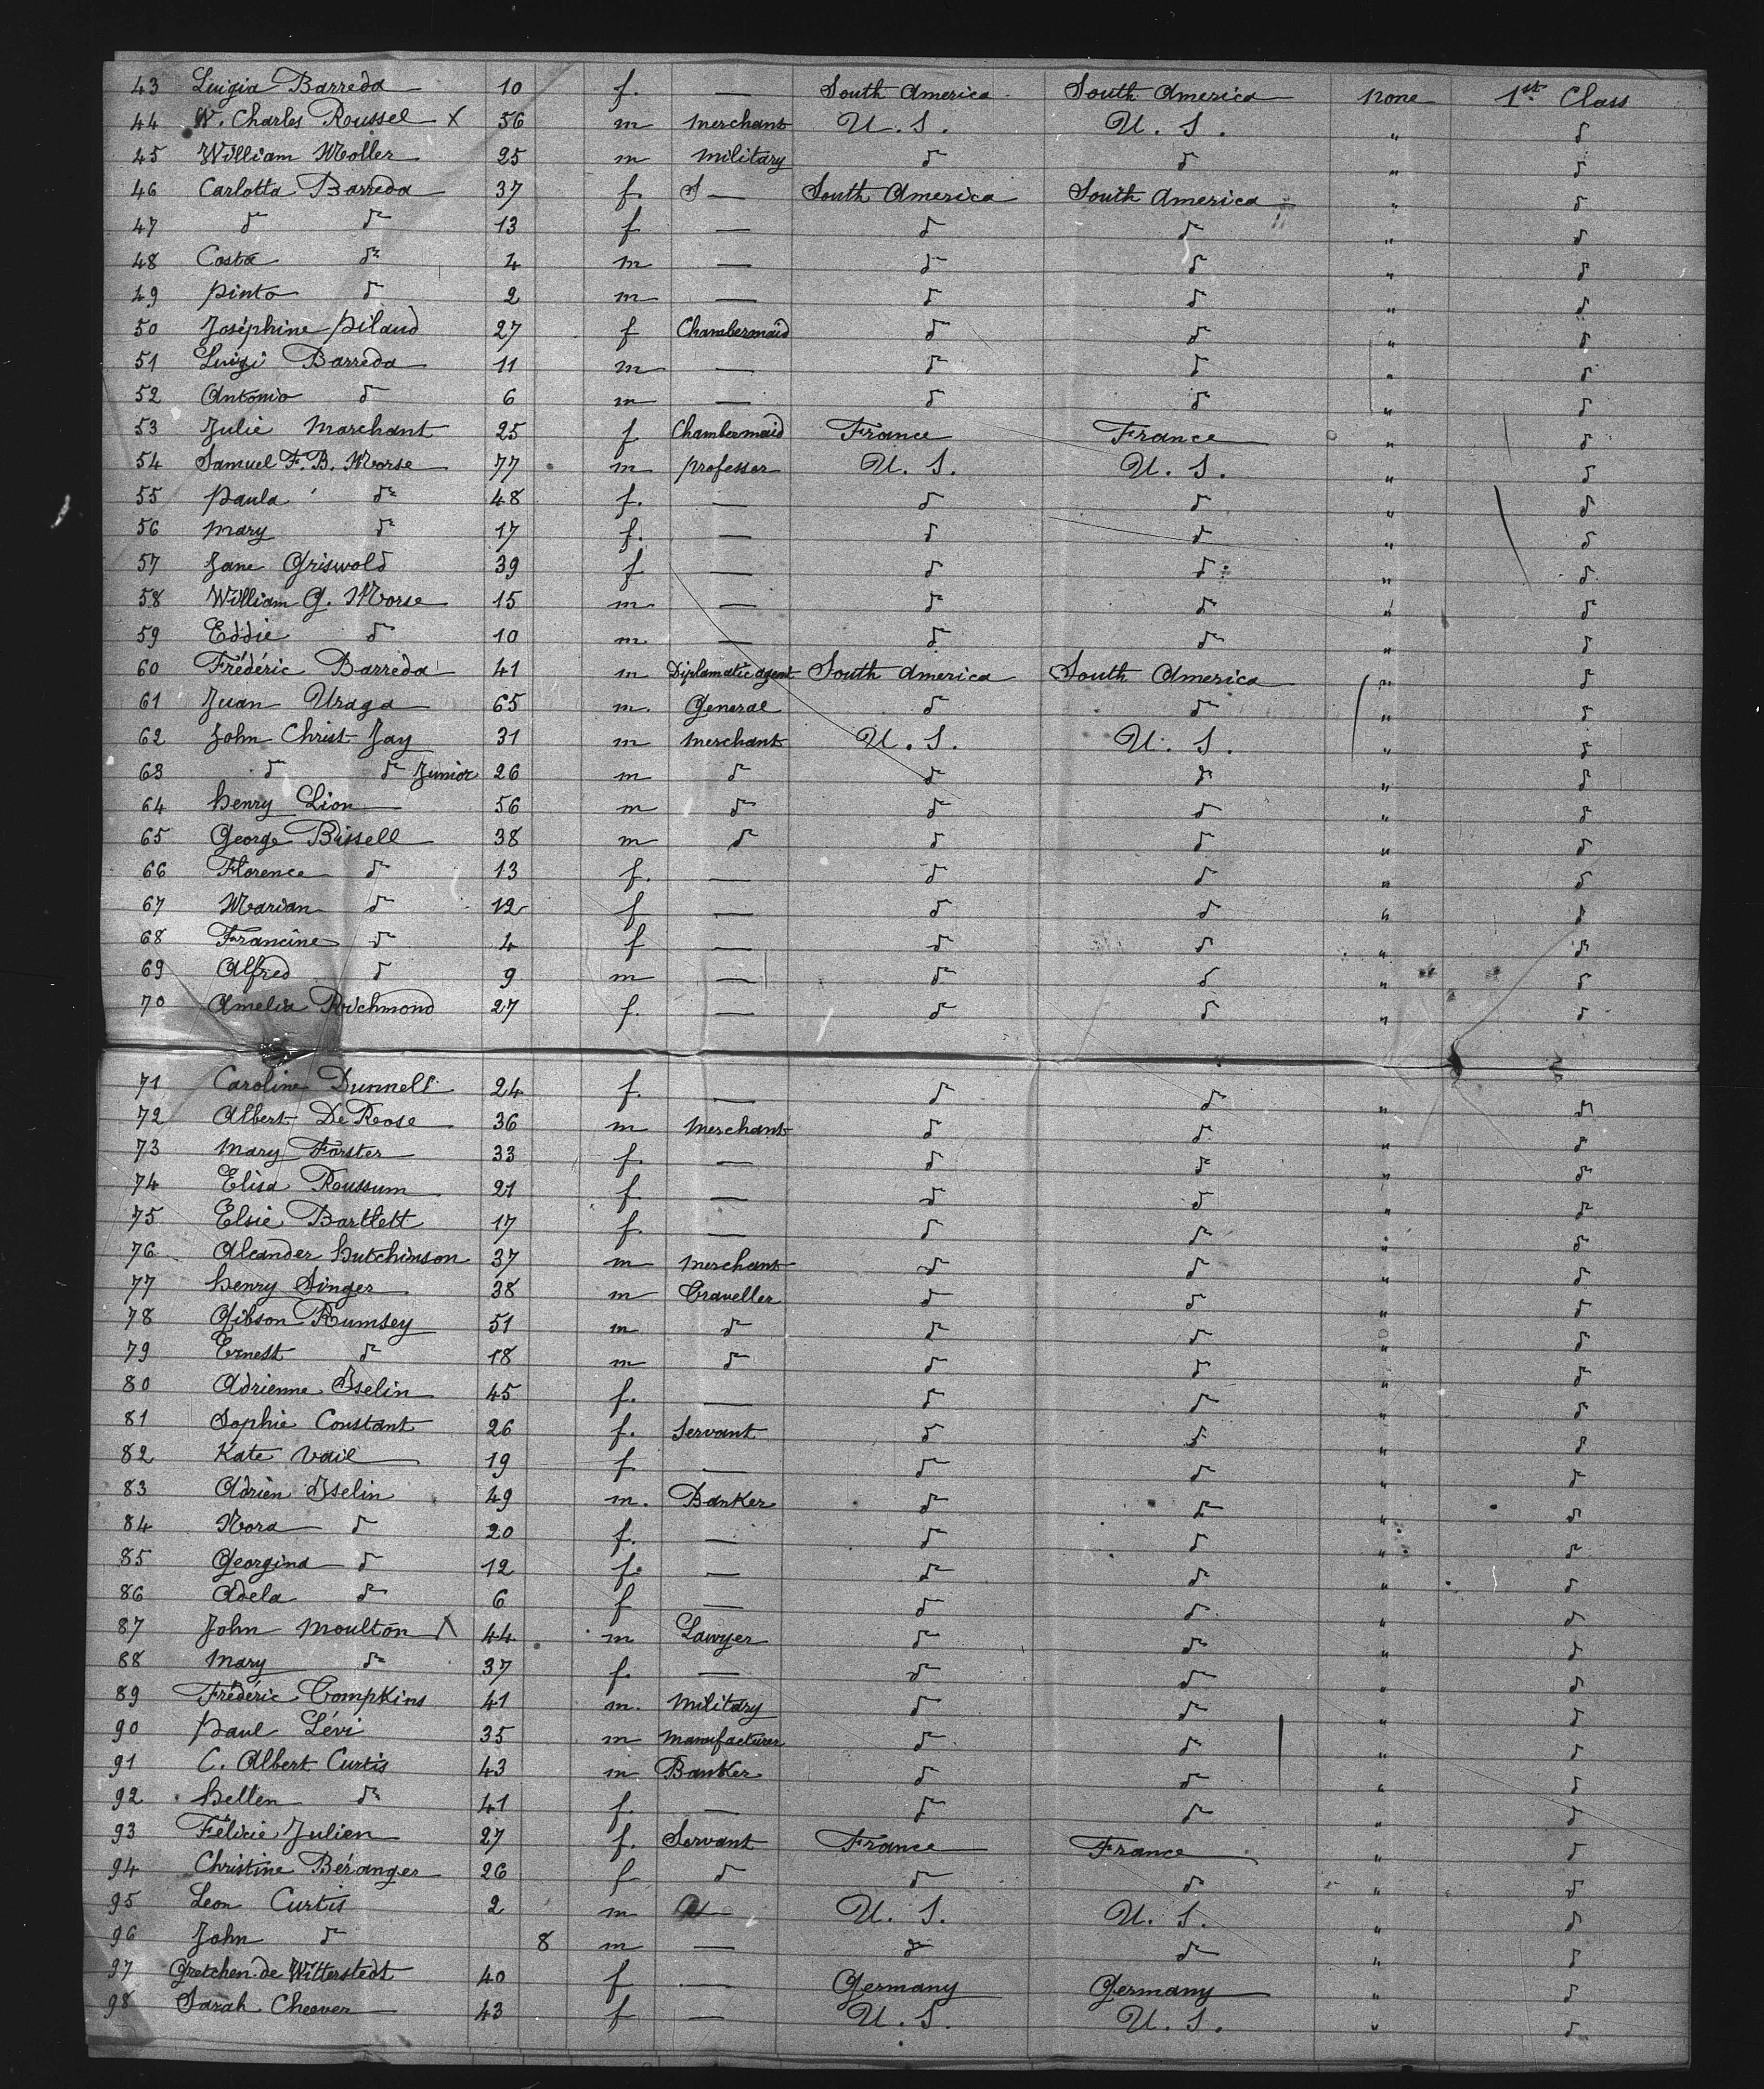 43 Luigia Barreda 10 f. — South America South America none 1st Class
44 W. Charles Roussel X 56 m merchant U. S. U. S. " d
45 William Moller 25 m military d d " d
46 Carlotta Barreda 37 f. S — South America South America " d
47 d d 13 f — d d " d
48 Costa d 4 m — d d " d
49 Pinto d 2 m — d d " d
50 Joséphine Pilaud 27 f Chambermaid d d " d
51 Luigi Barreda 11 m — d d " d
52 Antonio d 6 m — d d " d
53 Julie Marchant 25 f Chambermaid France France " d
54 Samuel F. B. Morse 77 m professor U. S. U. S. " d
55 Paula d 48 f. — d d " d
56 Mary d 17 f. — d d " d
57 Jane Griswold 39 f — d d " d
58 William G. Morse 15 m — d d " d
59 Eddie d 10 m — d d " d
60 Frédéric Barreda 41 m Diplomatic agent South America South America " d
61 Juan Uraga 65 m. General d d " d
62 John Christ Jay 31 m merchant U. S. U. S. " d
63 d d Junior 26 m d d d " d
64 Henry Lion 56 m d d d " d
65 George Bissell 38 m d d d " d
66 Florence d 13 f. — d d " d
67 Marian d 12 f — d d " d
68 Francine d 4 f — d d " d
69 Alfred d 9 m — d d " d
70 Amelia Richmond 27 f. — d d " d
71 Caroline Dunnell 24 f. — d d " d
72 Albert De Rose 36 m merchant d d " d
73 Mary Forster 33 f. — d d " d
74 Elisa Roussum 21 f. — d d " d
75 Elsie Bartlett 17 f. — d d " d
76 Alcander Hutchinson 37 m merchant d d " d
77 Henry Singer 38 m Traveller d d " d
78 Gibson Rumsey 51 m d d d " d
79 Ernest d 18 m d d d " d
80 Adrienne Iselin 45 f. — d d " d
81 Sophie Constant 26 f. Servant d d " d
82 Kate Vail 19 f — d d " d
83 Adrien Iselin 49 m. Banker d d " d
84 Nora d 20 f. — d d " d
85 Georgina d 12 f. — d d " d
86 Adela d 6 f — d d " d
87 John Moulton X 44 m Lawyer d d " d
88 Mary d 37 f. — d d " d
89 Frédéric Tompkins 41 m. military d d " d
90 Paul Lévi 35 m manufacturer d d " d
91 C. Albert Curtis 43 m Banker d d " d
92 Hellen d 41 f. — d d " d
93 Félicie Julien 27 f. Servant France France " d
94 Christine Béranger 26 f d d d " d
95 Leon Curtis 2 m — U. S. U. S. " d
96 John d 8 m — d d " d
97 Gretchen de Witterstedt 40 f — Germany Germany " d
98 Sarah Cheever 43 f — U. S. U. S. " d